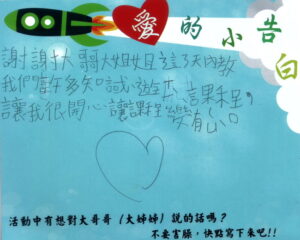 愛的小告白
謝謝大哥大姐姐這3天內教
我們許多知識、遊玩、課程,
讓我很開心讓課程變有心。
活動中有想對大哥哥（大姊姊）說的話嗎？
不要害臊，快點寫下來吧!!